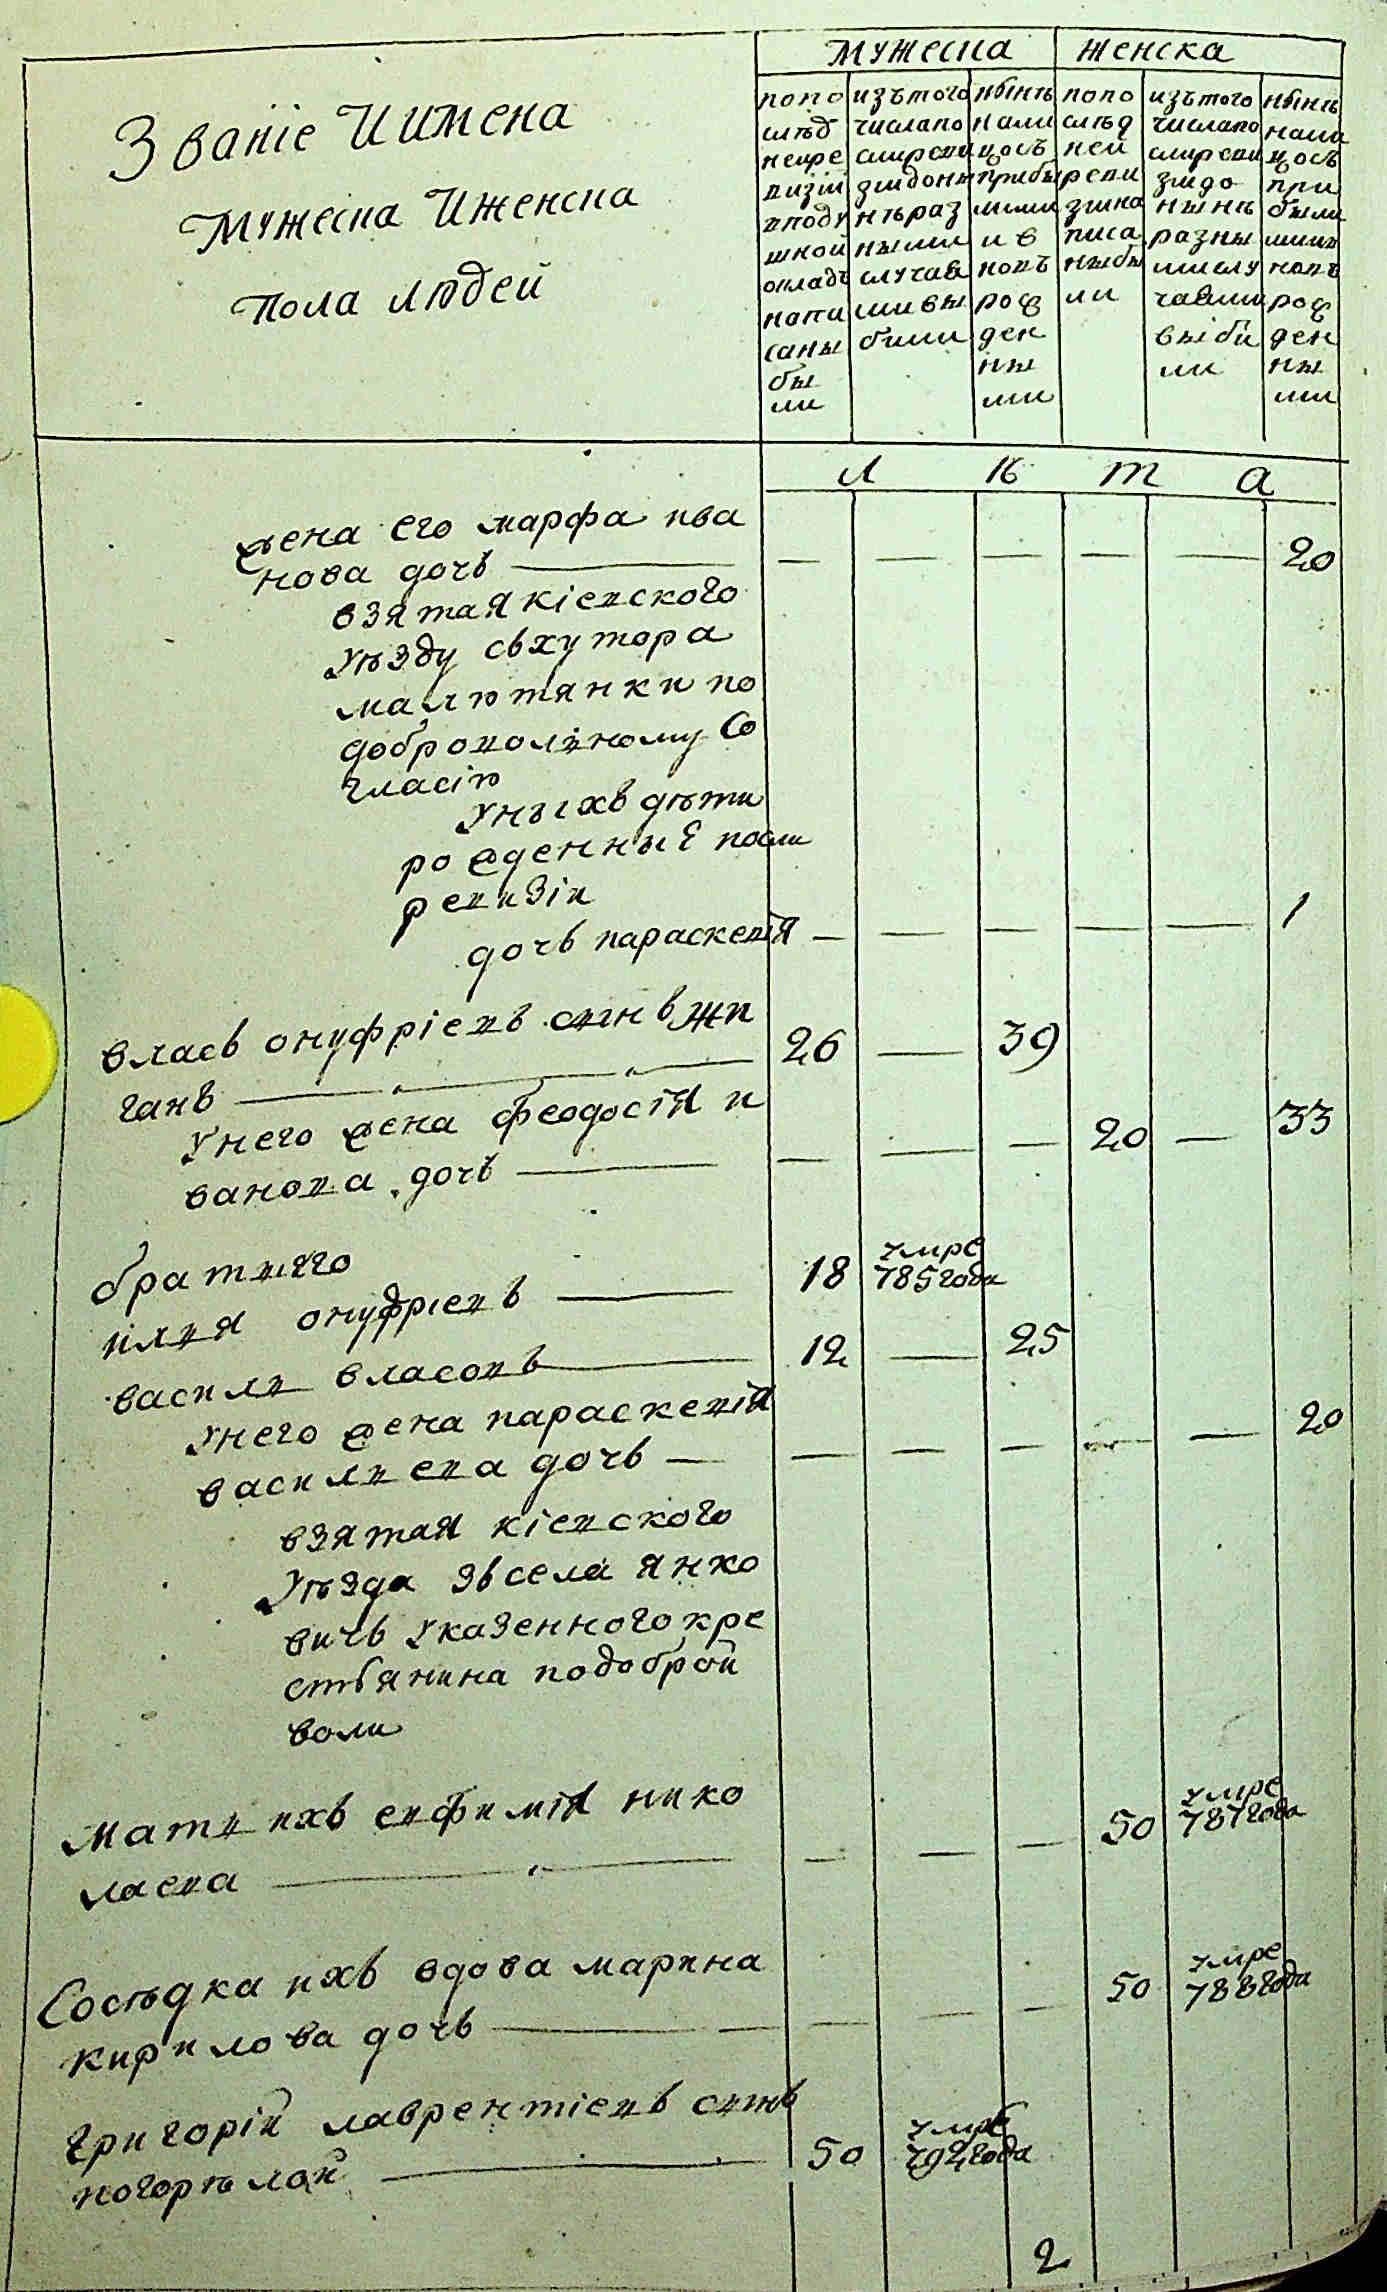 Мужеска женска
Званіе Иимена
Мужеска Иженска
Пола людей
попо
слѣд
ней ре
визіи
вподу
шной
окладъ
напи
саны
бы
ли
изътого
числапо
слиреви
зіидоны
нѣраз
ными
случая
мивы
были
нынѣ
нали
цосъ
прибы
лими
и в
новъ
рож
ден
ны
ми
попо
слѣд
ней
реви
зіина
писа
ныбы
ли
изътого
числапо
слиреви
зіидо
нынѣ
разны
мислу
чаями
выбы
ли
нынѣ
нали
цосъ
при
были
мии
новъ
рож
ден
ны
ми
л ѣ т а
жена его марфа ива
нова дочь — — — — — 20
взятая кіевского
уѣзду съхутора
малютянки по
доброволному со
гласію
Уныхъ дѣти
рожденные посли
ревизіи
дочь параскевія — — — — — 1
власъ онуфріевъ сынъ жи
ганъ 26 — 39
Унего жена феодосія и
ванова дочь — — — 20 — 33
братъего
илия онуфріевъ 18 умре 785 года
василь власовъ 12 — 25
Унего жена параскевія
василиева дочь — — — — — 20
взятая кіевского
Уѣзда зъсела янко
вичъ Указенного кре
стьянина подоброй
воли
мать ихъ евфимія нико
лаева — — — 50 умре 787 года
Сосѣдка ихъ вдова марина
кирилова дочь — — — 50 умре 788 года
григорій лаврентіевъ сынъ
погорѣлой 50 умре 792 года
2